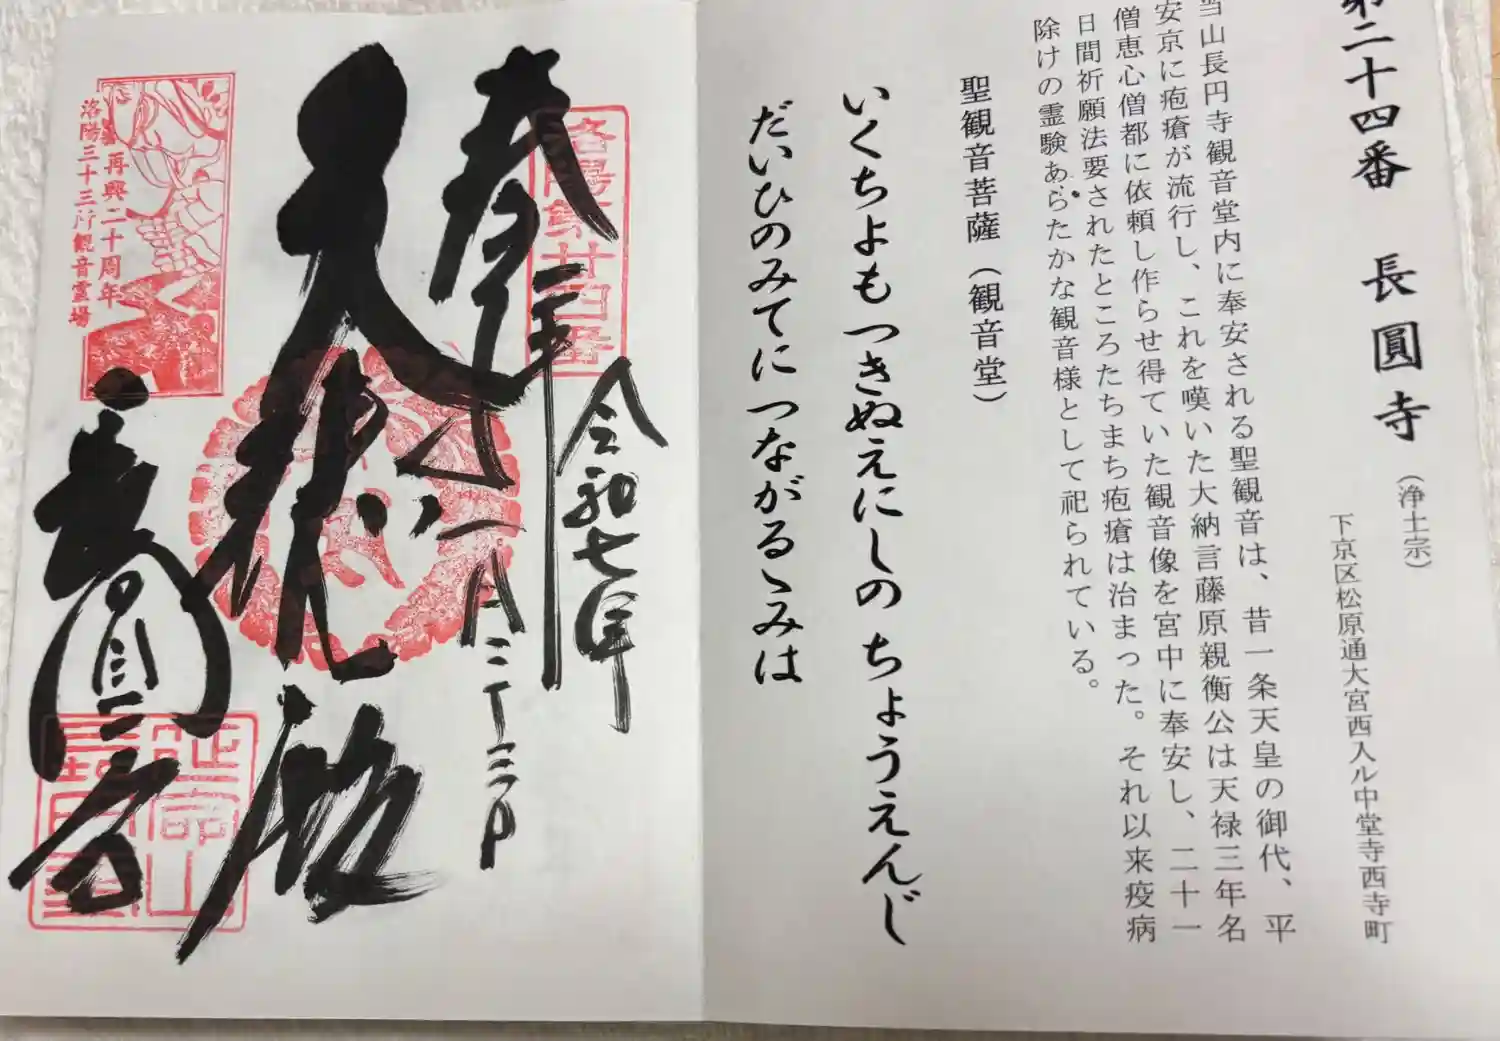 第二十四番 長圓寺（浄土宗）
下京区松原通大宮西入ル中堂寺西寺町
当山長円寺観音堂内に奉安される聖観音は、昔一条天皇の御代、平
安京に疱瘡が流行し、これを嘆いた大納言藤原親衡公は天禄三年名
僧恵心僧都に依頼し作らせ得ていた観音像を宮中に奉安し、二十一
日間祈願法要されたところたちまち疱瘡は治まった。それ以来疫病
除けの霊験あらたかな観音様として祀られている。
聖観音菩薩（観音堂）
いくちよもつきぬえにしの ちょうえんじ
だいひのみてに つながるゝみは
洛陽第廿四番
令和七年
奉拝
一月二十三日
大悲殿
長圓寺
再興二十周年
洛陽三十三所観音霊場